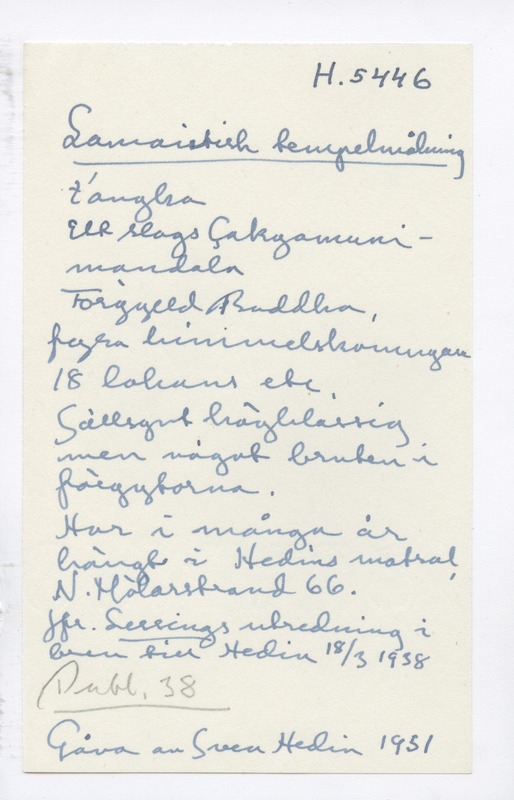 H.5446
Lamaistisk tempelmålning
t'angka
Ett slags Çakyamuni-
mandala
Förgylld Buddha,
fyra himmelskonungar
18 lohans etc
Sällsynt högklassig
men något bruten i
färgytorna.
Har i många år
hängt i Hedins matsal,
N. Mälarstrand 66.
Jfr. Lessings utredning i
brev till Hedin 18/3 1938
Dubl. 38
Gåva av Sven Hedin 1951